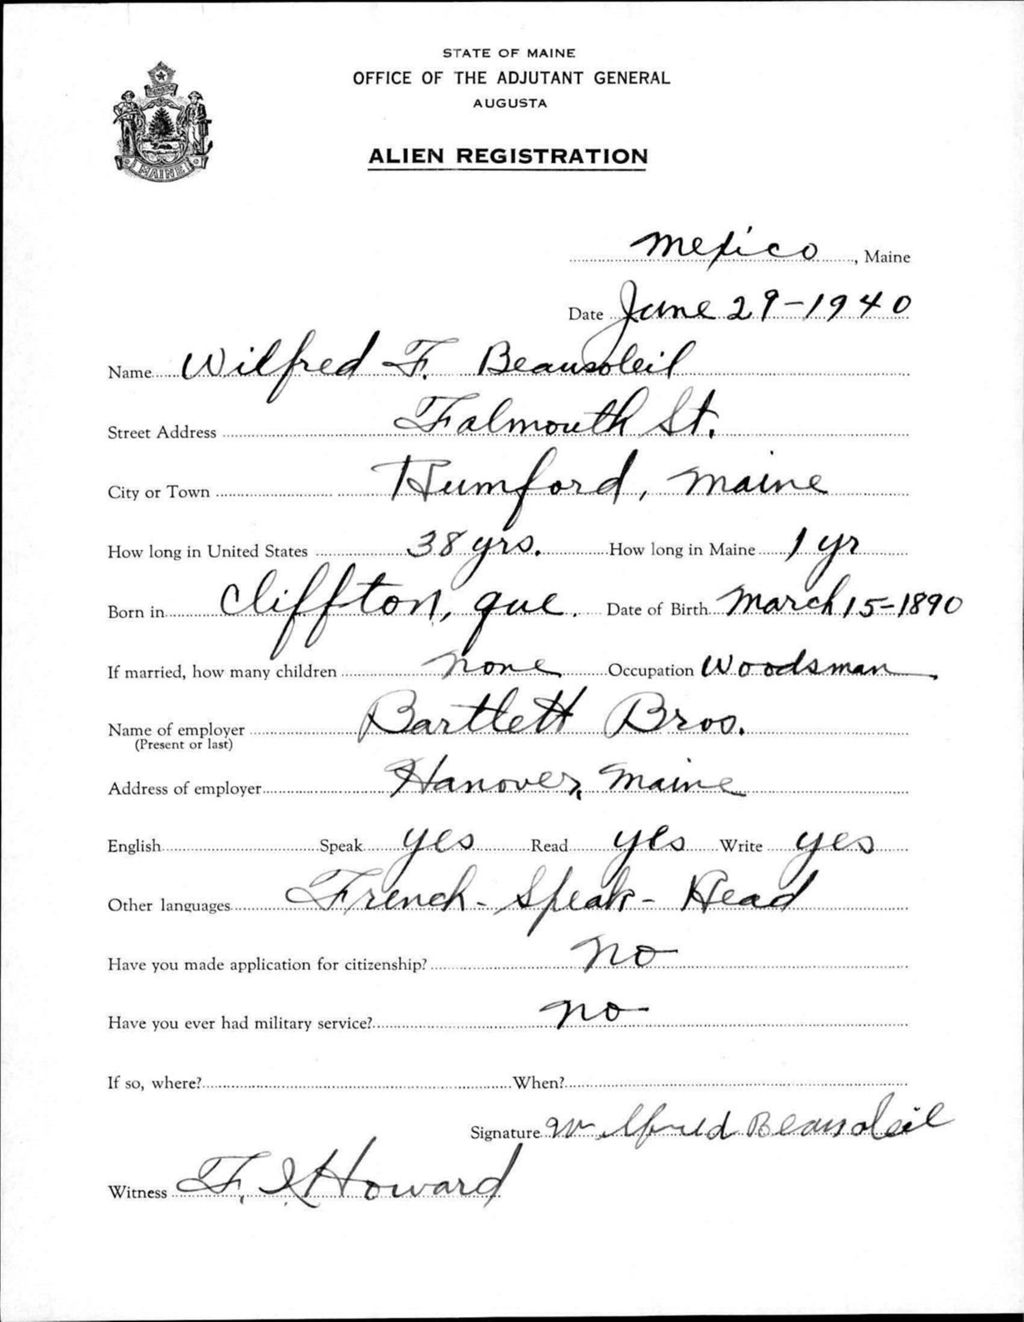 STATE OF MAINE
OFFICE OF THE ADJUTANT GENERAL
AUGUSTA
ALIEN REGISTRATION
MAINE
Mexico, Maine
Date June 29-1940
Name Wilfred F. Beausoleil
Street Address Falmouth St.
City or Town Rumford, Maine
How long in United States 38 yrs. How long in Maine 1 yr
Born in Cliffton, Que. Date of Birth March 15-1890
If married, how many children none Occupation Woodsman
Name of employer Bartlett Bros.
(Present or last)
Address of employer Hanover, Maine
English Speak yes Read yes Write yes
Other languages French - Speak - Read
Have you made application for citizenship? no
Have you ever had military service? no
If so, where? When?
Signature Wilfred Beausoleil
Witness F. I. Howard